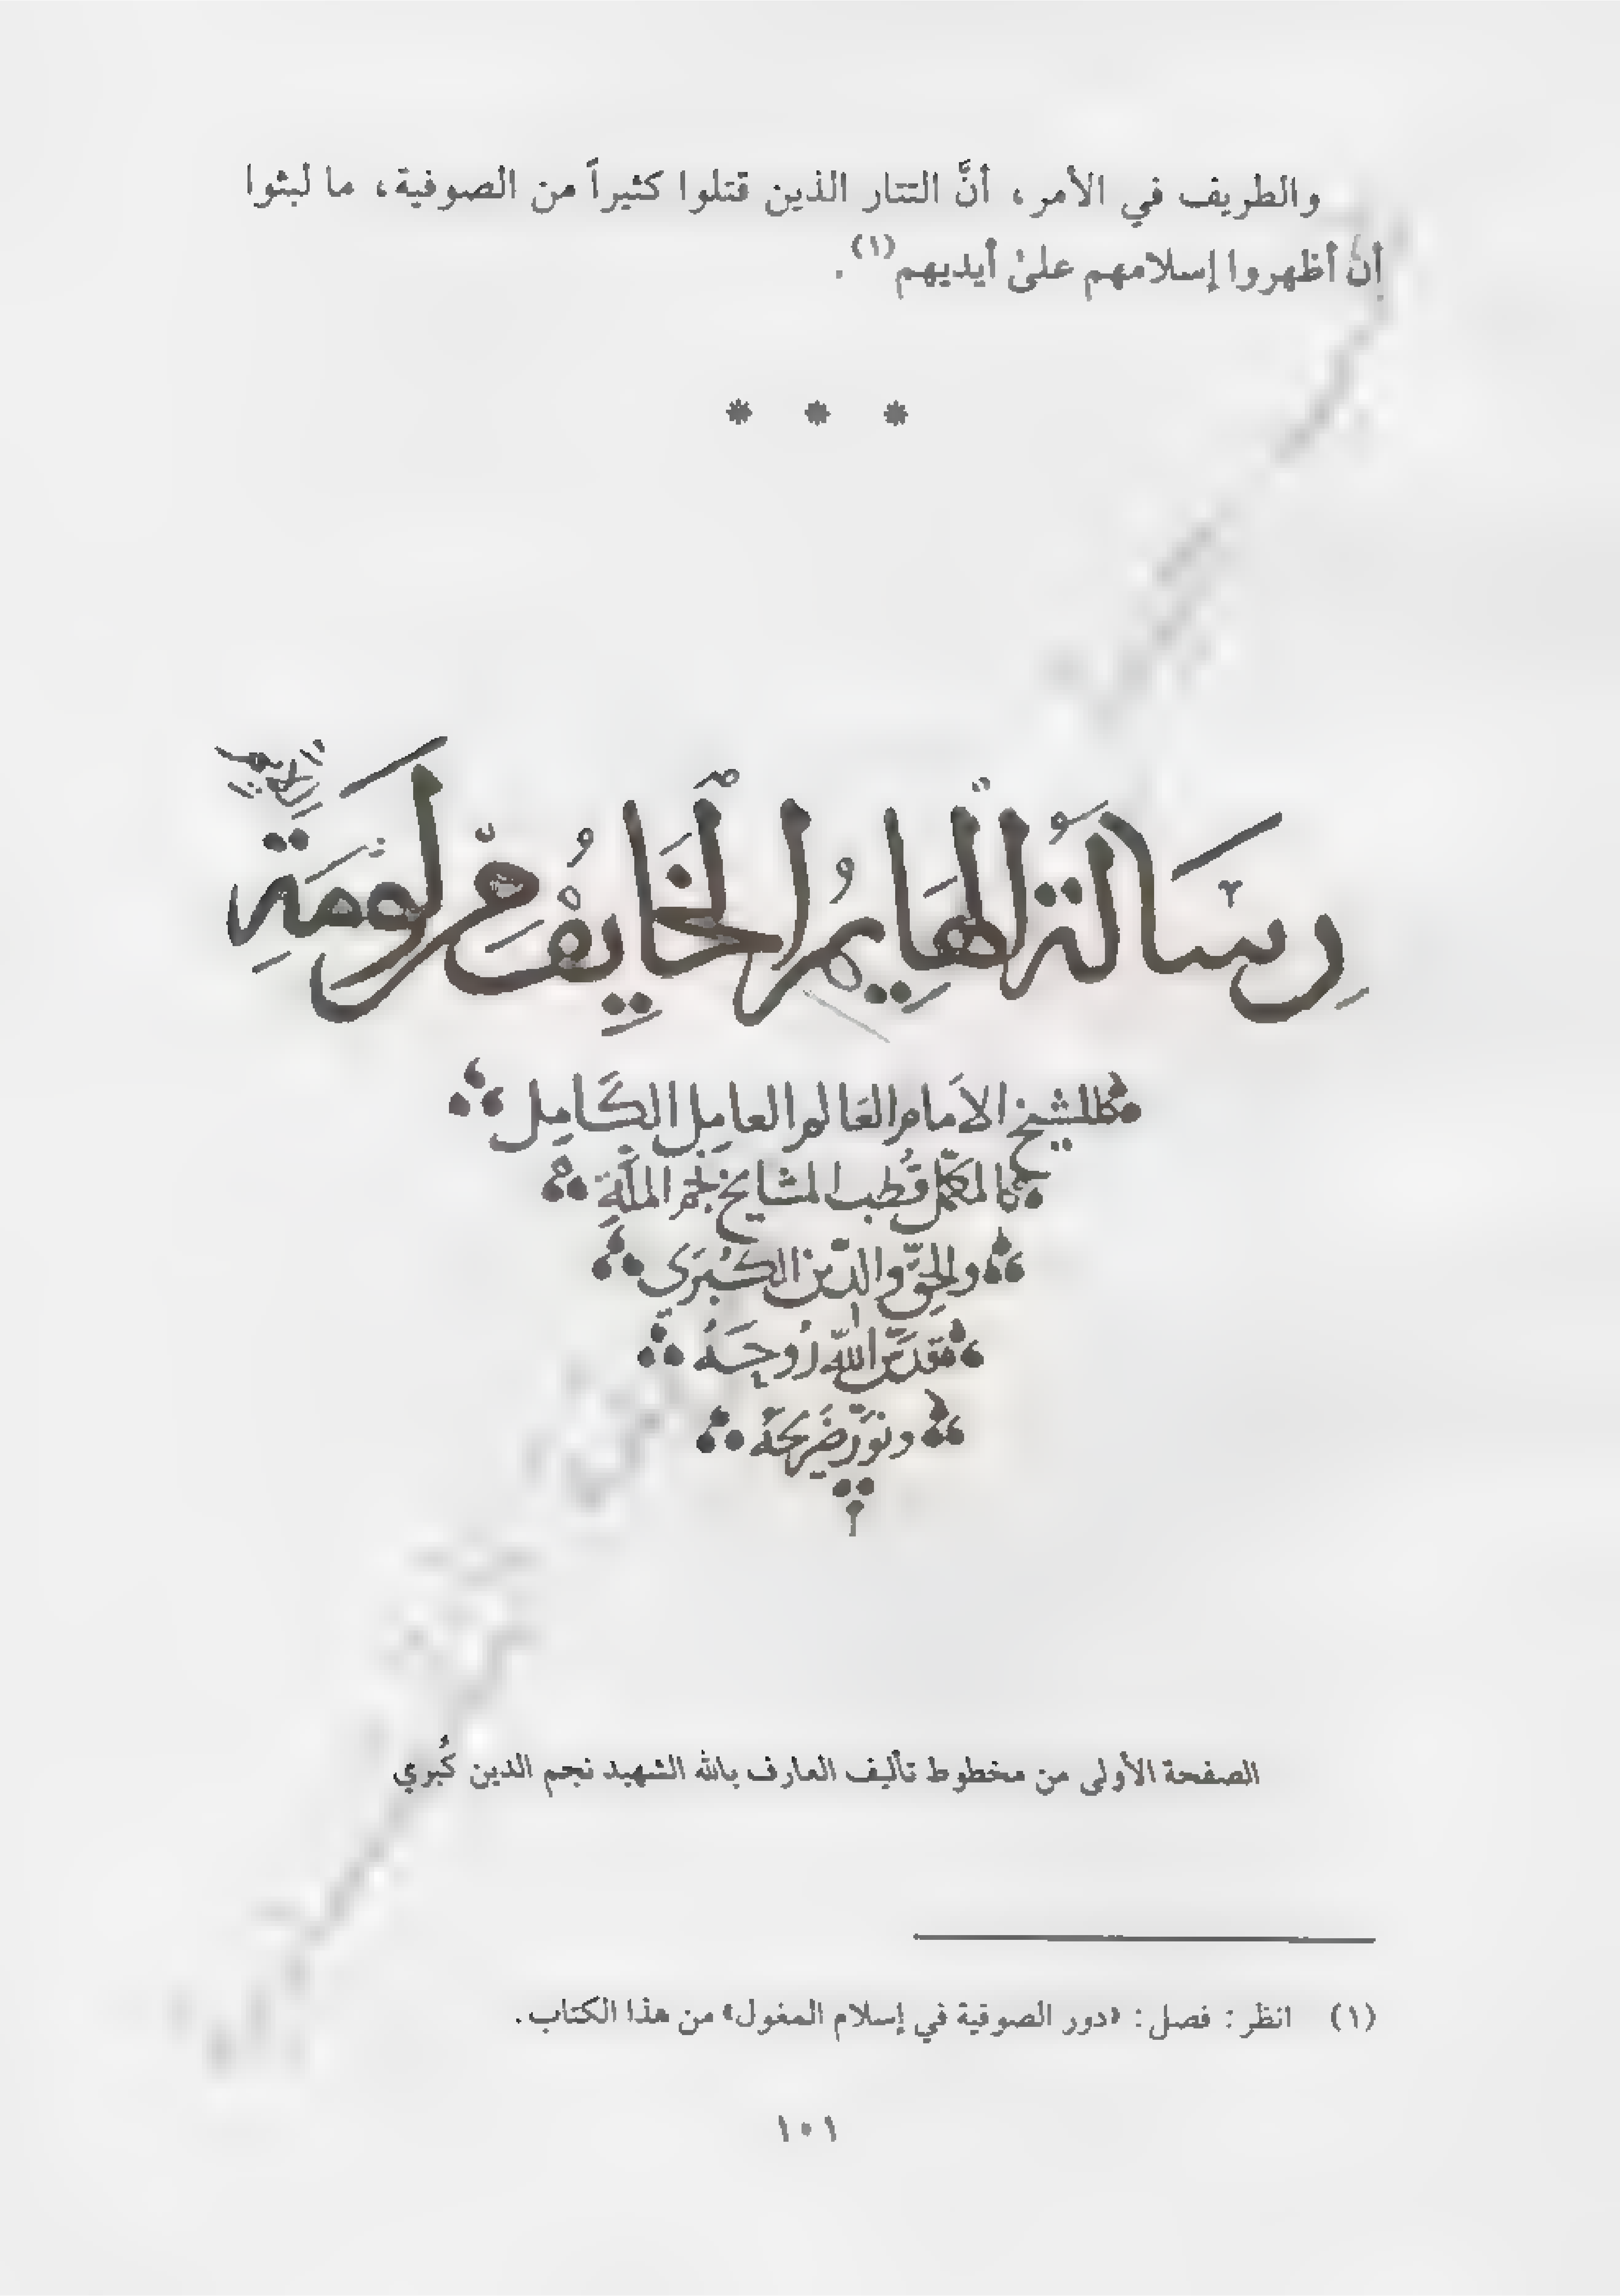 والطريف في الأمر، أنَّ التتار الذين قتلوا كثيراً من الصوفية، ما لبثوا
أنْ أظهروا إسلامهم علىٰ أيديهم(١).
* * *
رِسَالَةُ الْهَايِمُ الْخَايِفُ مِنْ لَوْمَةِ اللَّايِمِ
للشيخ الامام العَالم العامِل الكَامِل
المكمّل قُطب المشايخ نجم الملّةِ
والحقّ والدّين الكُبرَى
قدسَ اللّٰه رُوحَهُ
ونوّرَ ضَريحَهُ
الصفحة الأولى من مخطوط تأليف العارف بالله الشهيد نجم الدين كُبري
(١) انظر: فصل: «دور الصوفية في إسلام المغول» من هذا الكتاب.
١٠١